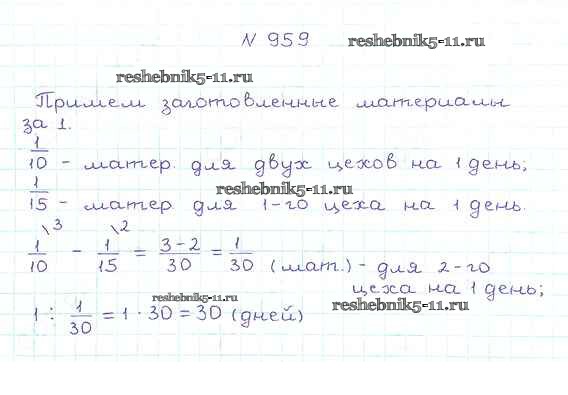 N 959 reshebnik5-11.ru
reshebnik5-11.ru
Примем заготовленные материалы
за 1.
1/10 - матер. для двух цехов на 1 день;
reshebnik5-11.ru
1/15 - матер для 1-го цеха на 1 день.
1/10 \3 - 1/15 \2 = 3-2/30 = 1/30 (мат.) - для 2-го
цеха на 1 день;
reshebnik5-11.ru
reshebnik5-11.ru
1 : 1/30 = 1 · 30 = 30 (дней)